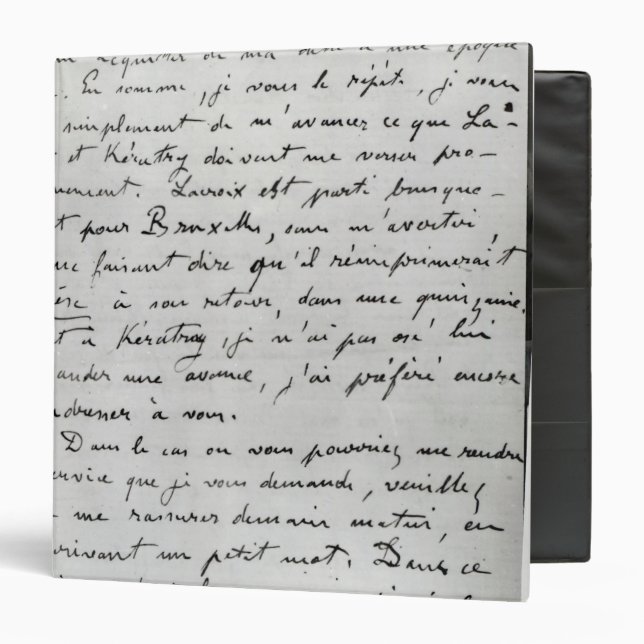 acquitter de ma dette à une époque
. En somme, je vous le répète, je veux
simplement de m'avancer ce que La-
et Kératry doivent me verser pro-
nement. Lacroix est parti brusque-
t pour Bruxelles, sans m'avertir,
me faisant dire qu'il réimprimerait
èse à son retour, dans une quinzaine.
t à Kératry, je n'ai pas osé lui
ander une avance, j'ai préféré encore
adresser à vous.
Dans le cas où vous pourriez me rendre
ervice que je vous demande, veuillez
me rassurer demain matin, en
rivant un petit mot. Dans ce